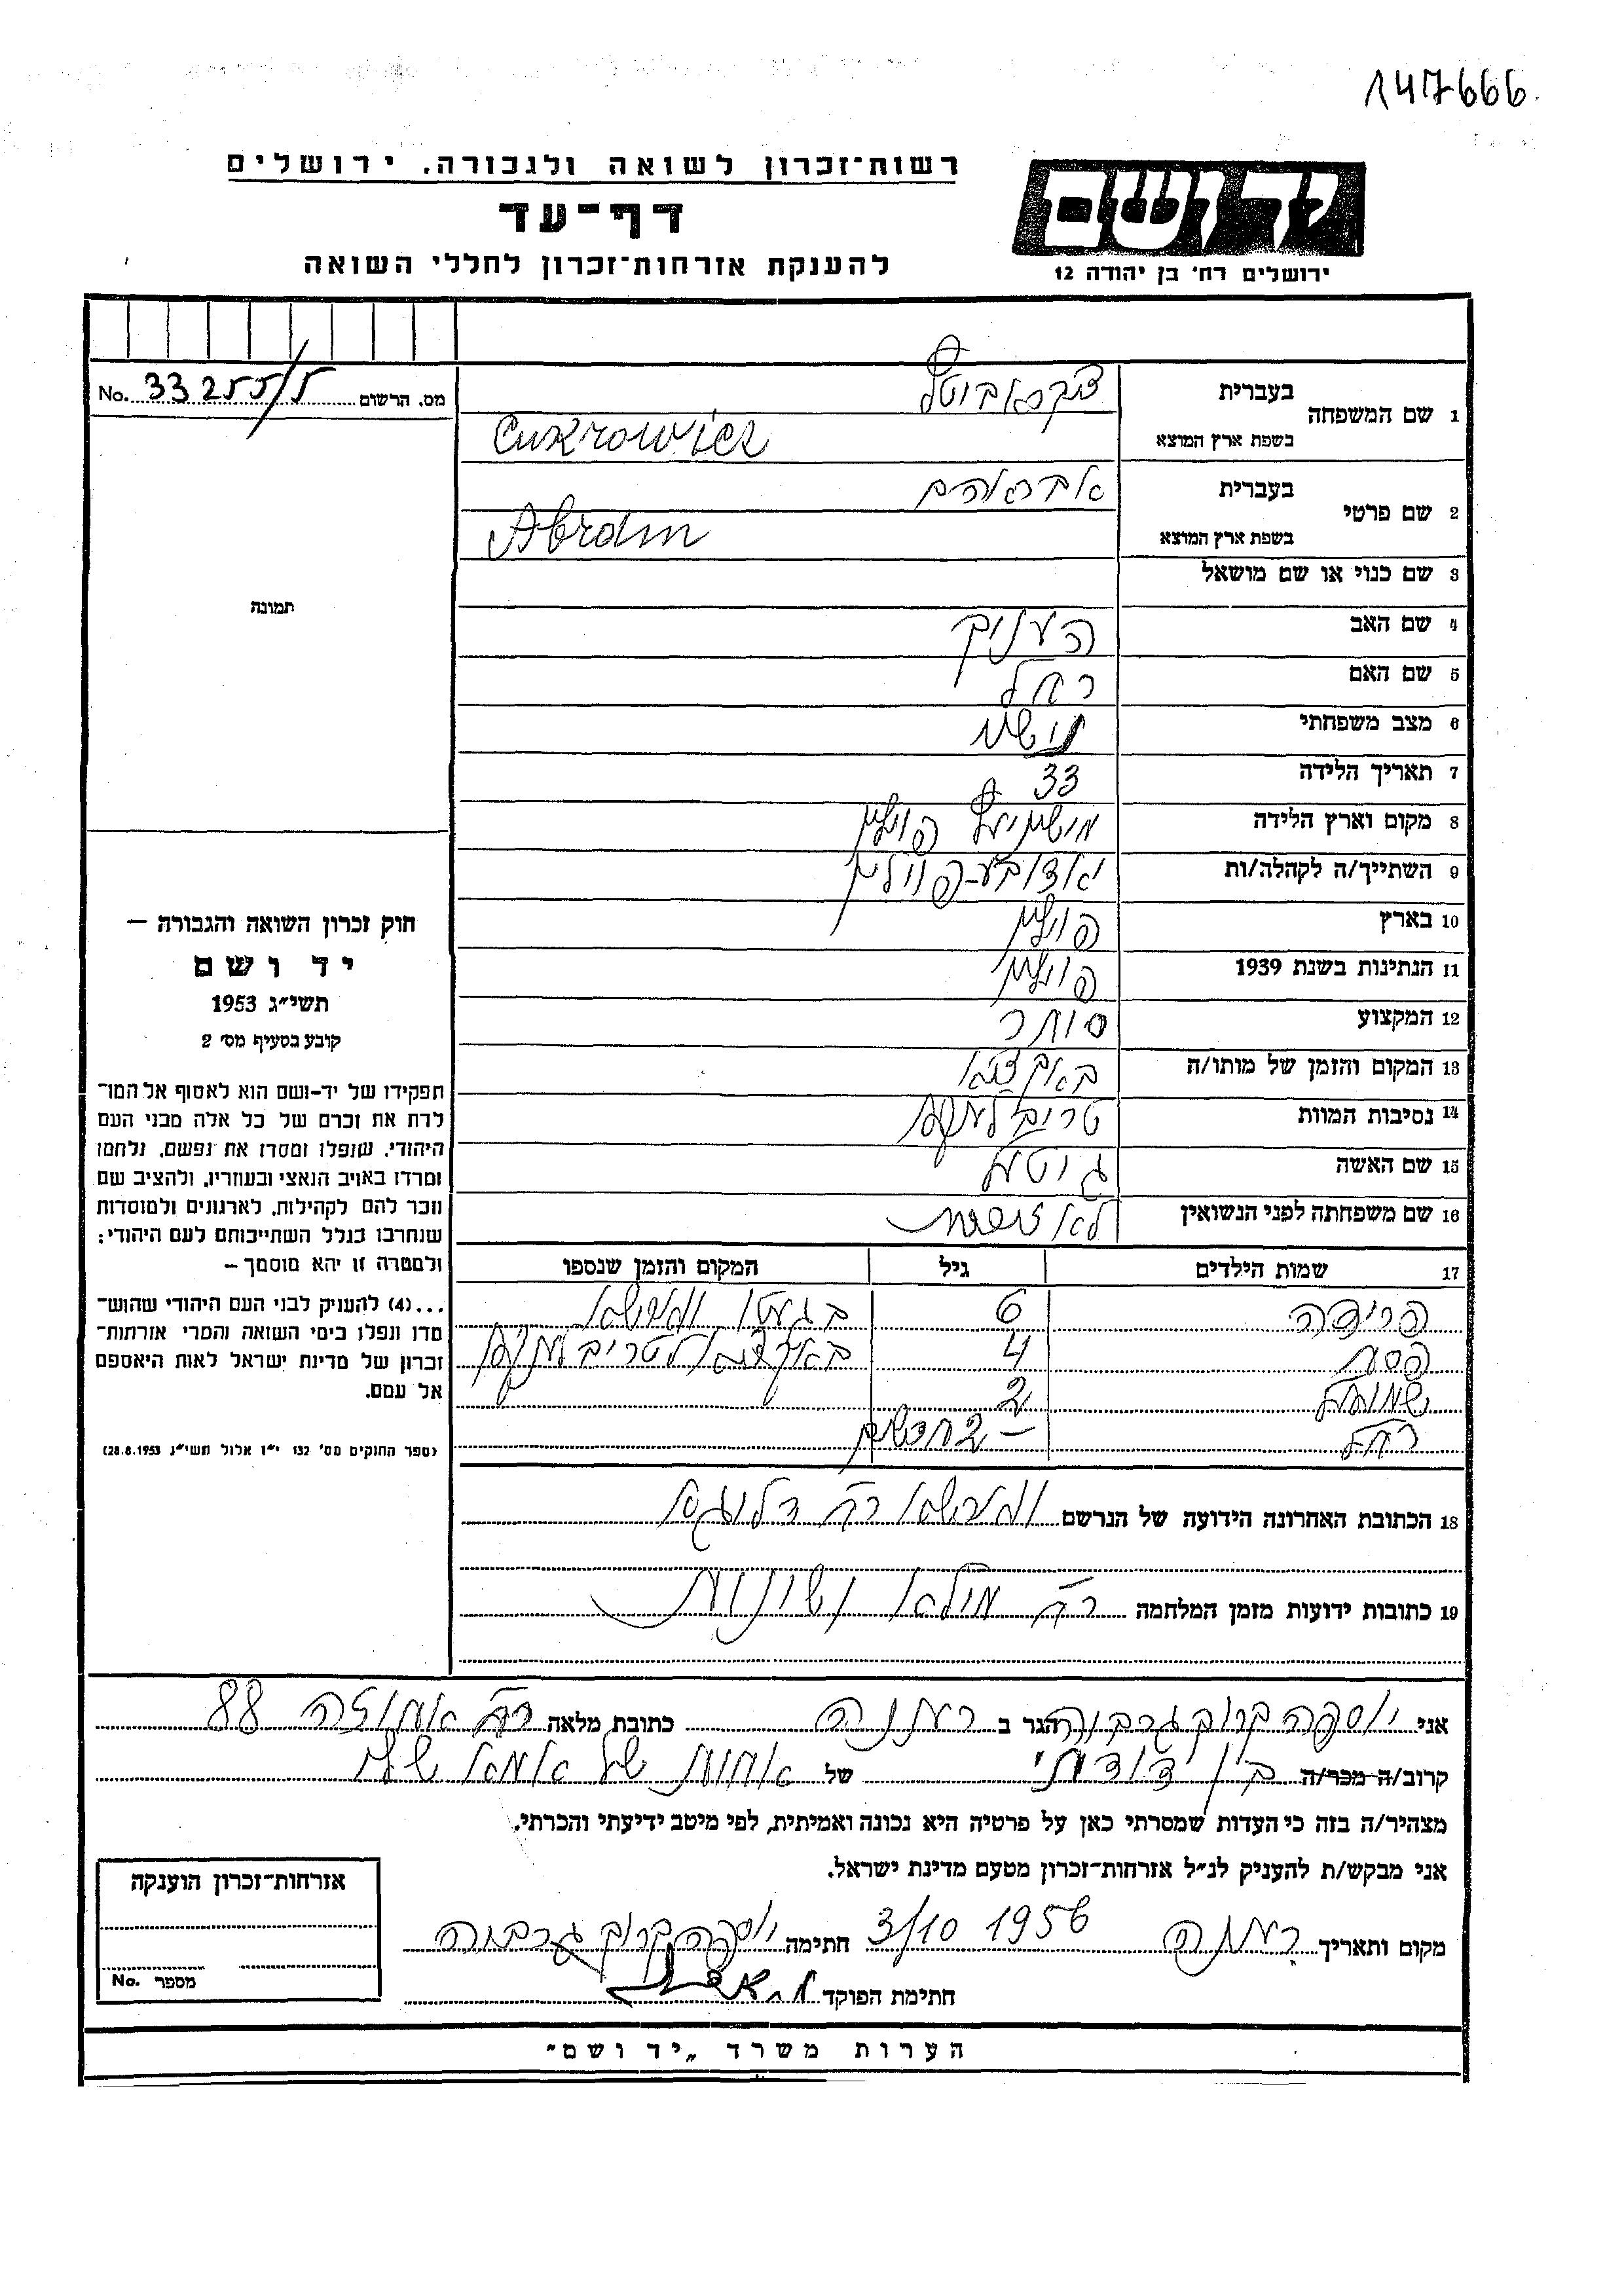 147666
רשות־זכרון לשואה ולגבורה. ירושלים
דף־עד
להענקת אזרחות־זכרון לחללי השואה
ידושם
ירושלים רח׳ בן יהודה 12
מס. הרשום No. 33255/5
תמונה
חוק זכרון השואה והגבורה –
יד ושם
תשי״ג 1953
קובע בסעיף מס׳ 2
תפקידו של יד-ושם הוא לאסוף אל המו־
לדת את זכרם של כל אלה מבני העם
היהודי, שנפלו ומסרו את נפשם, נלחמו
ומרדו באויב הנאצי ובעוזריו, ולהציב שם
וזכר להם לקהילות, לארגונים ולמוסדות
שנחרבו בגלל השתייכותם לעם היהודי;
ולמטרה זו יהא מוסמך –
...(4) להעניק לבני העם היהודי שהוש־
מדו ונפלו בימי השואה והמרי אזרחות־
זכרון של מדינת ישראל לאות היאספם
אל עמם.
(ספר החוקים מס׳ 132 י״ז אלול תשי״ג 28.8.1953)
1 שם המשפחה בעברית
בשפת ארץ המוצא Cukrowicz
2 שם פרטי בעברית אבראהם
בשפת ארץ המוצא Abram
3 שם כנוי או שם מושאל
4 שם האב העניך
5 שם האם רחל
6 מצב משפחתי נושוי
7 תאריך הלידה 33
8 מקום וארץ הלידה פולין
9 השתייך/ה לקהלה/ות פולין
10 בארץ פולין
11 הנתינות בשנת 1939 פולין
12 המקצוע סוחר
13 המקום והזמן של מותו/ה
14 נסיבות המוות
15 שם האשה גוטע
16 שם משפחתה לפני הנשואין
17 שמות הילדים גיל המקום והזמן שנספו
פרידה 6 בגעטו ווארשא
פסח 4
שמואל 2
רחל – 2 חדשים
18 הכתובת האחרונה הידועה של הנרשם ווארשא רח׳
19 כתובות ידועות מזמן המלחמה רח׳ מילא
אני יוספה קרוב גרבוה הגר ב רעננה כתובת מלאה רח׳ אחוזה 88
קרוב/ה מכר/ה בין דודתי של אחות של אמא שלי
מצהיר/ה בזה כי העדות שמסרתי כאן על פרטיה היא נכונה ואמיתית, לפי מיטב ידיעתי והכרתי.
אני מבקש/ת להעניק לנ״ל אזרחות־זכרון מטעם מדינת ישראל.
מקום ותאריך רעננה 3/10 1956 חתימה יוספה קרוב גרבוה
חתימת הפוקד
אזרחות־זכרון הוענקה
מספר No.
הערות משרד „יד ושם״